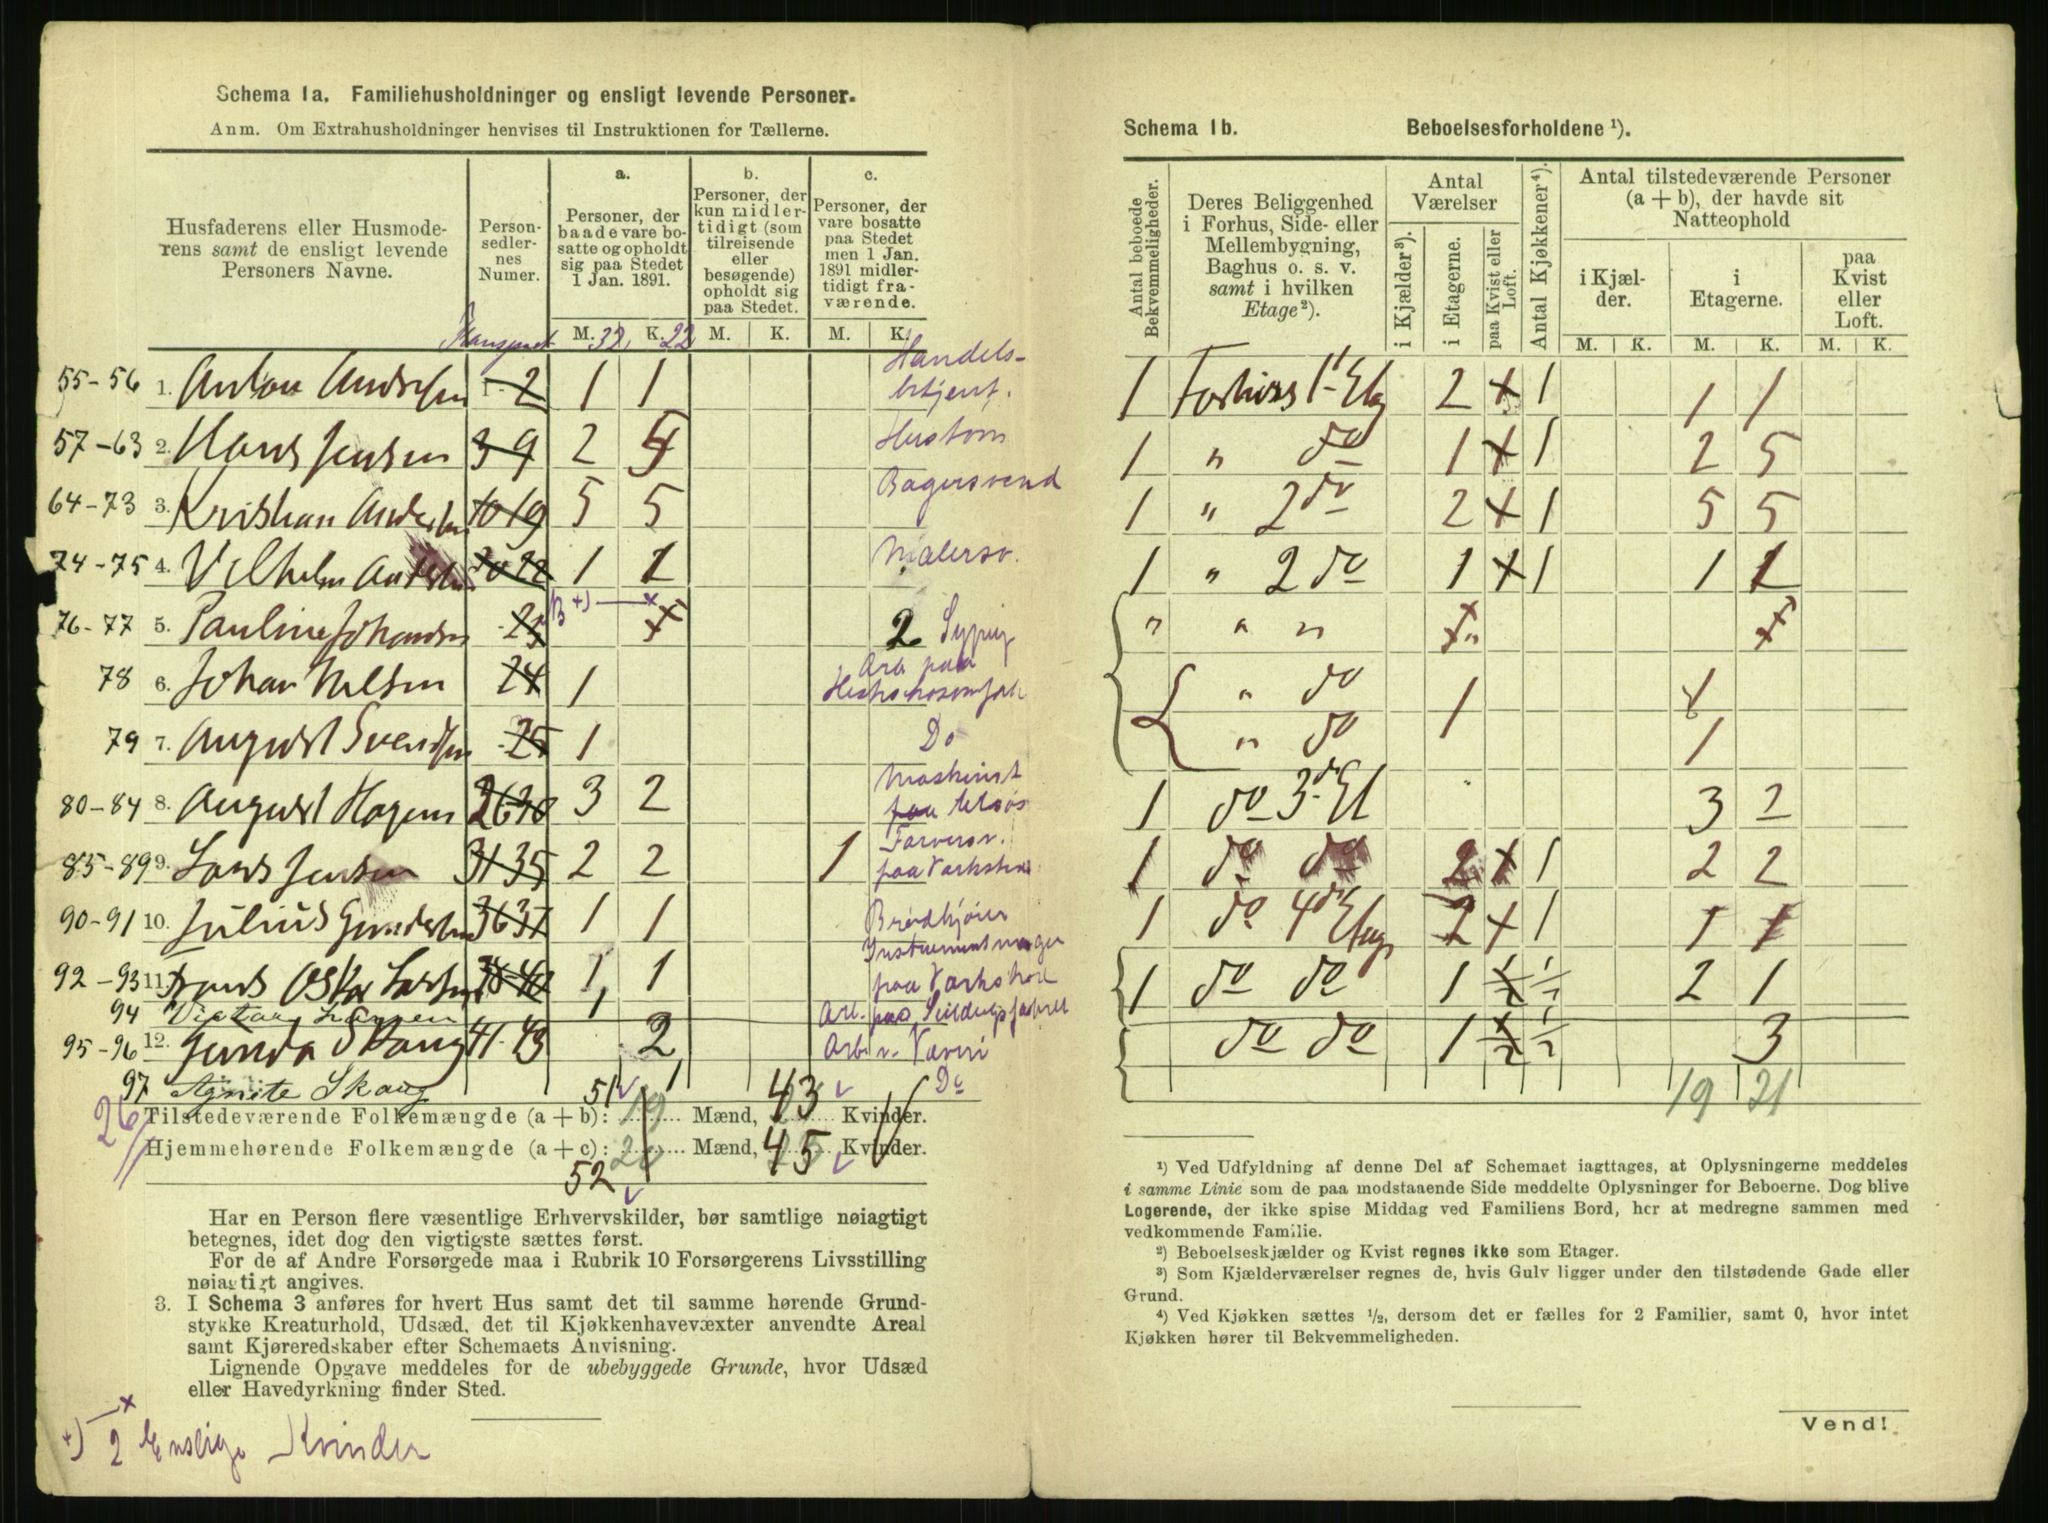 Schema 1a. Familiehusholdninger og ensligt levende Personer.
Anm. Om Extrahusholdninger henvises til Instruktionen for Tællerne.
Husfaderens eller Husmoderens samt de ensligt levende Personers Navne.
Personsedlernes Numer.
a.
Personer, der baade vare bosatte og opholdt sig paa Stedet 1 Jan. 1891.
b.
Personer, der kun midlertidigt (som tilreisende eller besøgende) opholdt sig paa Stedet.
c.
Personer, der vare bosatte paa Stedet men 1 Jan. 1891 midlertidigt fraværende.
Transport M. 32 K. 22 M. K. M. K.
55-56 1. Anton Andersen 1-2 1 1 Handelsbetjent.
57-63 2. Hans Jensen 3 9 2 5 Hustom
64-73 3. Kristian Andersen 10 19 5 5 Bagersvend
74-75 4. Vilhelm Andersen 1 1 Malersv.
76-77 5. Pauline Johansen 23 2 Sypig
78 6. Johan Nilsen 24 1 Arb paa
79 7. August Svendsen 25 1 Do
80-84 8. August Hagen 26 30 3 2 Maskinist
85-89 9. Lars Jensen 31 35 2 2 1 Farversv. paa Værksted
90-91 10. Julius Gundersen 36 37 1 1 Brødkjører
92-93 11. Frans Oskar Larsen 38-40 1 1 Instrumentmager paa Værksted
94 Viktor Larsen 1 Arb. paa
95-96 12. Gunda Skaug 41-43 2 Arb v. Væveri
97 Agnite Skaug 1 Do
51 43
Tilstedeværende Folkemængde (a + b): 19 Mænd, Kvinder.
26
Hjemmehørende Folkemængde (a + c): 20 Mænd, 45 Kvinder.
52
Har en Person flere væsentlige Erhvervskilder, bør samtlige nøiagtigt
betegnes, idet dog den vigtigste sættes først.
For de af Andre Forsørgede maa i Rubrik 10 Forsørgerens Livsstilling
nøiagtigt angives.
3. I Schema 3 anføres for hvert Hus samt det til samme hørende Grund-
stykke Kreaturhold, Udsæd, det til Kjøkkenhavevæxter anvendte Areal
samt Kjøreredskaber efter Schemaets Anvisning.
Lignende Opgave meddeles for de ubebyggede Grunde, hvor Udsæd
eller Havedyrkning finder Sted.
+) 2 Enslige Kvinder
Schema 1b. Beboelsesforholdene ¹).
Antal beboede Bekvemmeligheder.
Deres Beliggenhed i Forhus, Side- eller Mellembygning, Baghus o. s. v. samt i hvilken Etage ²).
Antal Værelser
i Kjælder ³).
i Etagerne.
paa Kvist eller Loft.
Antal Kjøkkener ⁴).
Antal tilstedeværende Personer (a + b), der havde sit Natteophold
i Kjælder.
i Etagerne.
paa Kvist eller Loft.
M. K. M. K. M. K.
1 Forhuss 1 Etg 2 + 1 1 1
1 " do 1 + 1 2 5
1 " 2 do 2 + 1 5 5
1 " 2 do 1 + 1 1 1
" " "
" do 1 1
" do 1
1 do 3 Et 3 2
1 do do 2 + 1 2 2
1 do 4 Etage 2 + 1 1 1
1 do do 1 ½ 2 1
do do 1 ½ 3
19 21
¹) Ved Udfyldning af denne Del af Schemaet iagttages, at Oplysningerne meddeles
i samme Linie som de paa modstaaende Side meddelte Oplysninger for Beboerne. Dog blive
Logerende, der ikke spise Middag ved Familiens Bord, her at medregne sammen med
vedkommende Familie.
²) Beboelseskjælder og Kvist regnes ikke som Etager.
³) Som Kjælderværelser regnes de, hvis Gulv ligger under den tilstødende Gade eller
Grund.
⁴) Ved Kjøkken sættes ½, dersom det er fælles for 2 Familier, samt 0, hvor intet
Kjøkken hører til Bekvemmeligheden.
Vend!